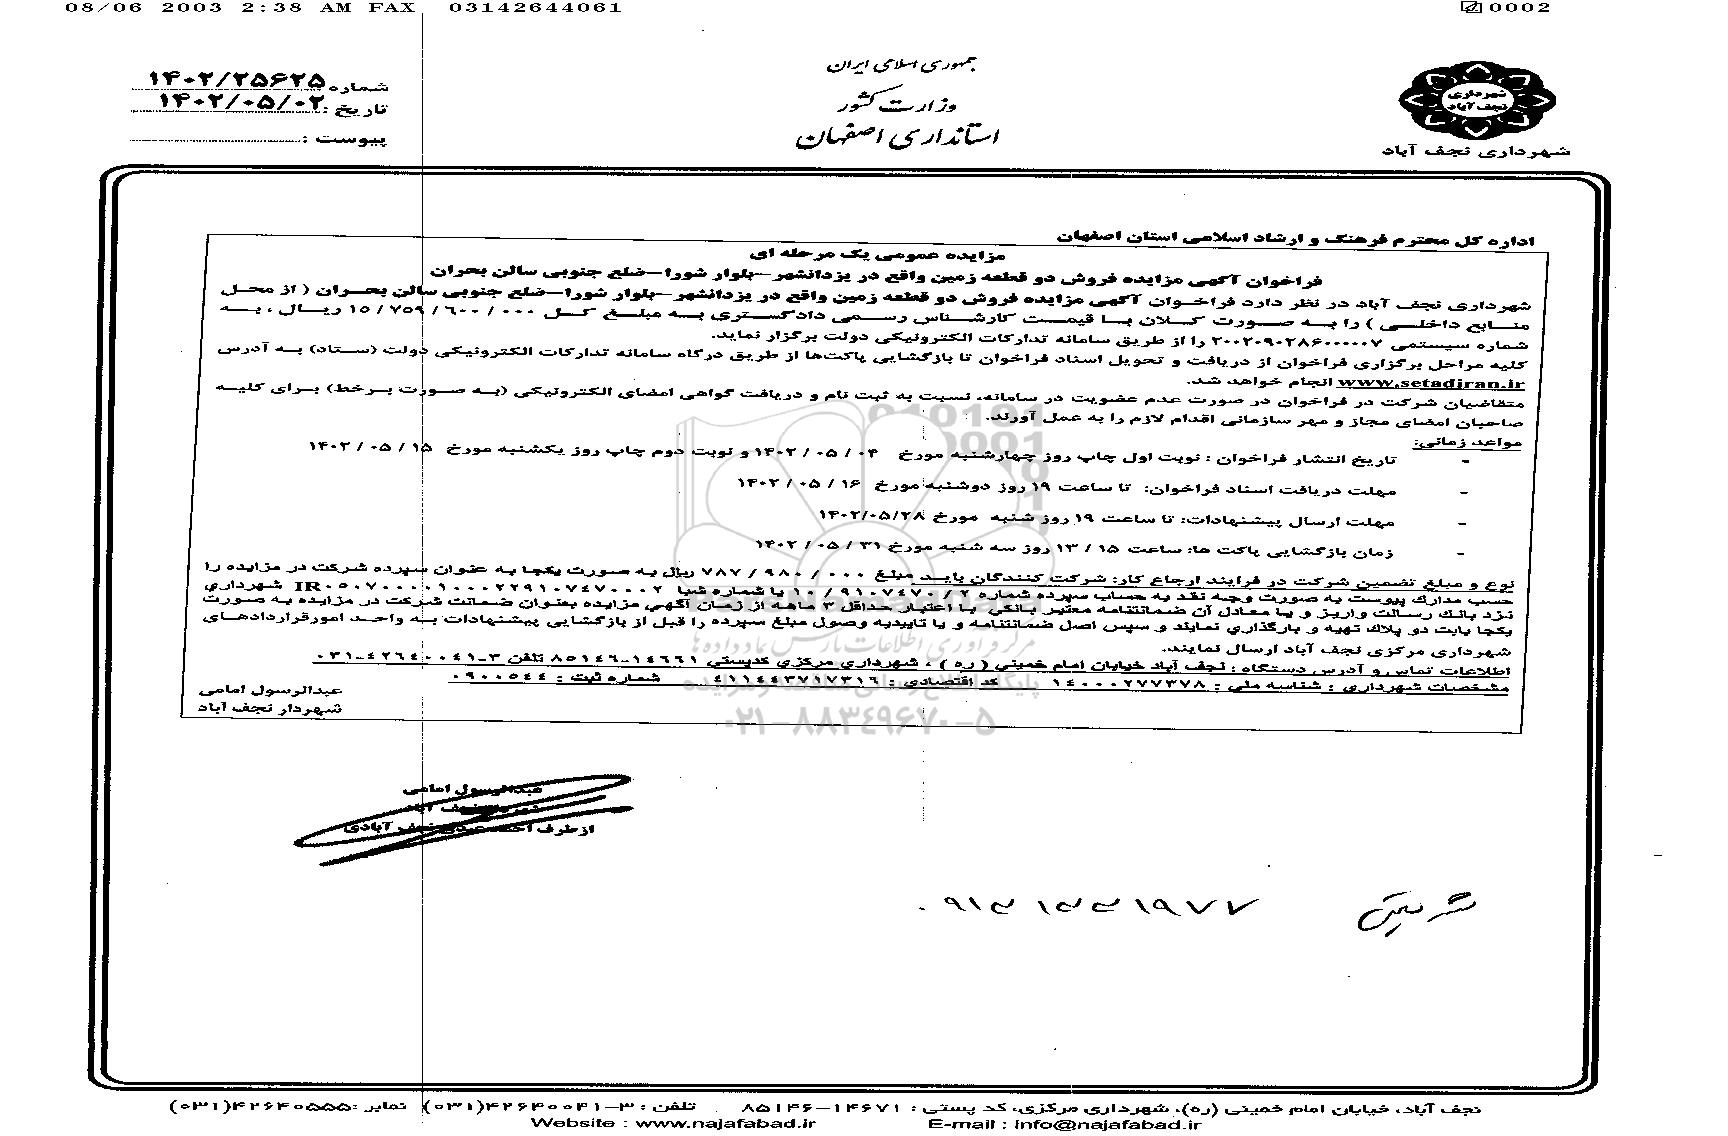 08/06 2003 2:38 AM FAX 03142644061 0002
جمهوری اسلامی ایران
وزارت کشور
استانداری اصفهان
شهرداری نجف آباد
شهرداری نجف آباد
شماره ۱۴۰۲/۲۵۶۲۵
تاریخ : ۱۴۰۲/۰۵/۰۲
پیوست :
اداره کل محترم فرهنگ و ارشاد اسلامی استان اصفهان
مزایده عمومی یک مرحله ای
فراخوان آگهی مزایده فروش دو قطعه زمین واقع در یزدانشهر–بلوار شورا–ضلع جنوبی سالن بحران
شهرداری نجف آباد در نظر دارد فراخوان آگهی مزایده فروش دو قطعه زمین واقع در یزدانشهر–بلوار شورا–ضلع جنوبی سالن بحران ( از محل
منابع داخلی ) را به صورت کلان با قیمت کارشناس رسمی دادگستری به مبلغ کل ۰۰۰ / ۶۰۰ / ۷۵۹ / ۱۵ ریال ، به
شماره سیستمی ۲۰۰۲۰۹۰۲۸۶۰۰۰۰۰۷ را از طریق سامانه تدارکات الکترونیکی دولت برگزار نماید.
کلیه مراحل برگزاری فراخوان از دریافت و تحویل اسناد فراخوان تا بازگشایی پاکت‌ها از طریق درگاه سامانه تدارکات الکترونیکی دولت (ستاد) به آدرس
www.setadiran.ir انجام خواهد شد.
متقاضیان شرکت در فراخوان در صورت عدم عضویت در سامانه، نسبت به ثبت نام و دریافت گواهی امضای الکترونیکی (به صورت برخط) برای کلیه
صاحبان امضای مجاز و مهر سازمانی اقدام لازم را به عمل آورند.
مواعد زمانی:
- تاریخ انتشار فراخوان : نوبت اول چاپ روز چهارشنبه مورخ ۰۴ / ۰۵ / ۱۴۰۲ و نوبت دوم چاپ روز یکشنبه مورخ ۱۵ / ۰۵ / ۱۴۰۲
- مهلت دریافت اسناد فراخوان: تا ساعت ۱۹ روز دوشنبه مورخ ۱۶ / ۰۵ / ۱۴۰۲
- مهلت ارسال پیشنهادات: تا ساعت ۱۹ روز شنبه مورخ ۱۴۰۲/۰۵/۲۸
- زمان بازگشایی پاکت ها: ساعت ۱۵ / ۱۳ روز سه شنبه مورخ ۳۱ / ۰۵ / ۱۴۰۲
نوع و مبلغ تضمین شرکت در فرایند ارجاع کار: شرکت کنندگان باید مبلغ ۰۰۰ / ۹۸۰ / ۷۸۷ ریال به صورت یکجا به عنوان سپرده شرکت در مزایده را
حسب مدارک پیوست به صورت وجه نقد به حساب سپرده شماره ۲ / ۹۱۰۷۴۷۰ / ۱۰ با شماره شبا شهرداری
نزد بانک رسالت واریز و یا معادل آن ضمانتنامه معتبر بانکی با اعتبار حداقل ۳ ماهه از زمان آگهی مزایده بعنوان ضمانت شرکت در مزایده به صورت
یکجا بابت دو پلاک تهیه و بارگذاری نمایند و سپس اصل ضمانتنامه و یا تاییدیه وصول مبلغ سپرده را قبل از بازگشایی پیشنهادات به واحد امورقراردادهای
شهرداری مرکزی نجف آباد ارسال نمایند.
اطلاعات تماس و آدرس دستگاه : نجف آباد خیابان امام خمینی ( ره ) ، شهرداری مرکزی کدپستی ۱۴۶۶۱–۸۵۱۴۶ تلفن ۳–۰۳۱–۴۲۶۴۰۰۴۱
مشخصات شهرداری : شناسه ملی : ۱۴۰۰۰۲۷۷۳۷۸ کد اقتصادی : ۴۱۱۴۴۳۷۱۷۳۱۶ شماره ثبت : ۰۹۰۰۵۴۴
عبدالرسول امامی
شهردار نجف آباد
ParsNamadData
مرکز فرآوری اطلاعات پارس نماد داده ها
۰۲۱–۸۸۳۴۹۶۷۰–۵
عبدالرسول امامی
نجف آباد
ازطرف نجف آبادی
شریعتی
نجف آباد، خیابان امام خمینی (ره)، شهرداری مرکزی، کد پستی : ۱۴۶۷۱–۸۵۱۴۶ تلفن : ۳–۴۲۶۴۰۰۴۱(۰۳۱) نمابر :۴۲۶۴۰۵۵۵(۰۳۱)
Website : www.najafabad.ir E-mail : info@najafabad.ir